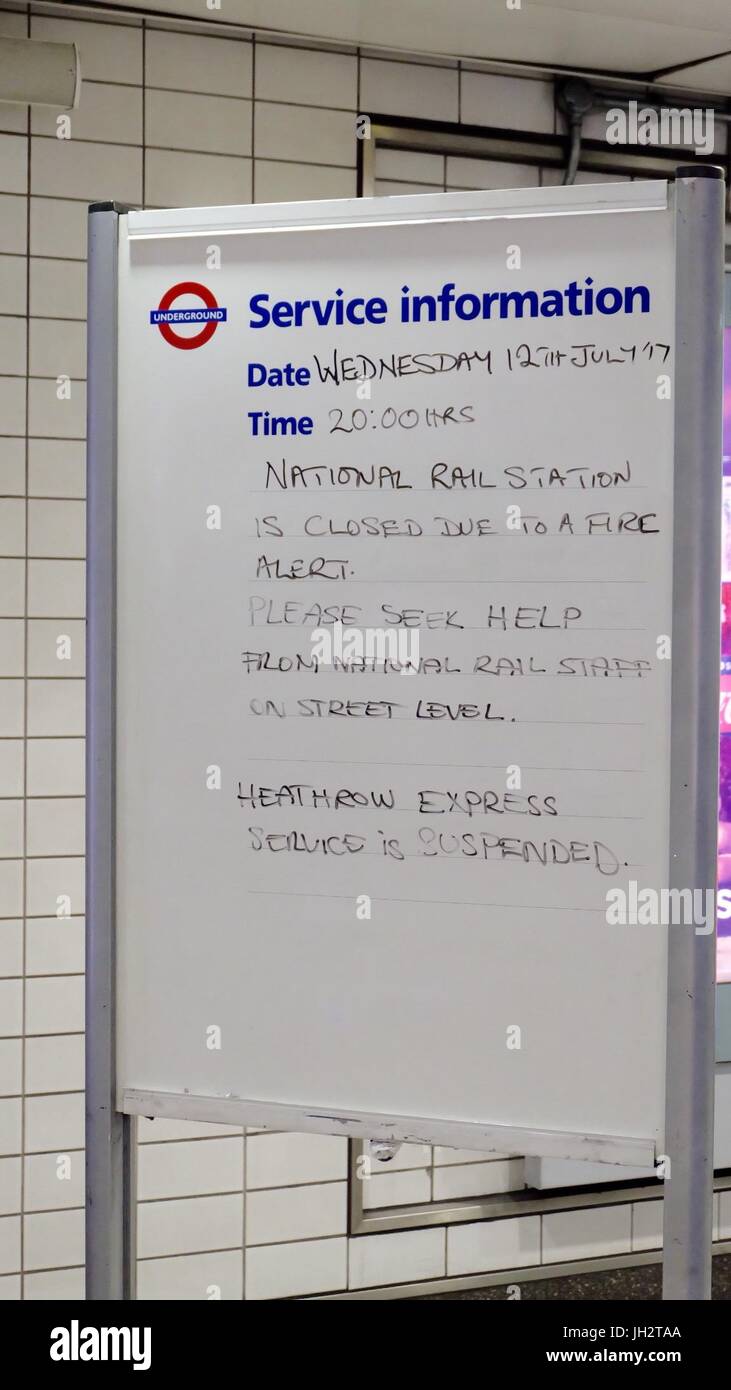 UNDERGROUND
Service information
Date WEDNESDAY 12TH JULY '17
Time 20:00HRS
NATIONAL RAIL STATION
IS CLOSED DUE TO A FIRE
ALERT.
PLEASE SEEK HELP
FROM NATIONAL RAIL STAFF
ON STREET LEVEL.
HEATHROW EXPRESS
SERVICE is SUSPENDED.
alamy
alamy
alamy
alamy
Image ID: JH2TAA
www.alamy.com